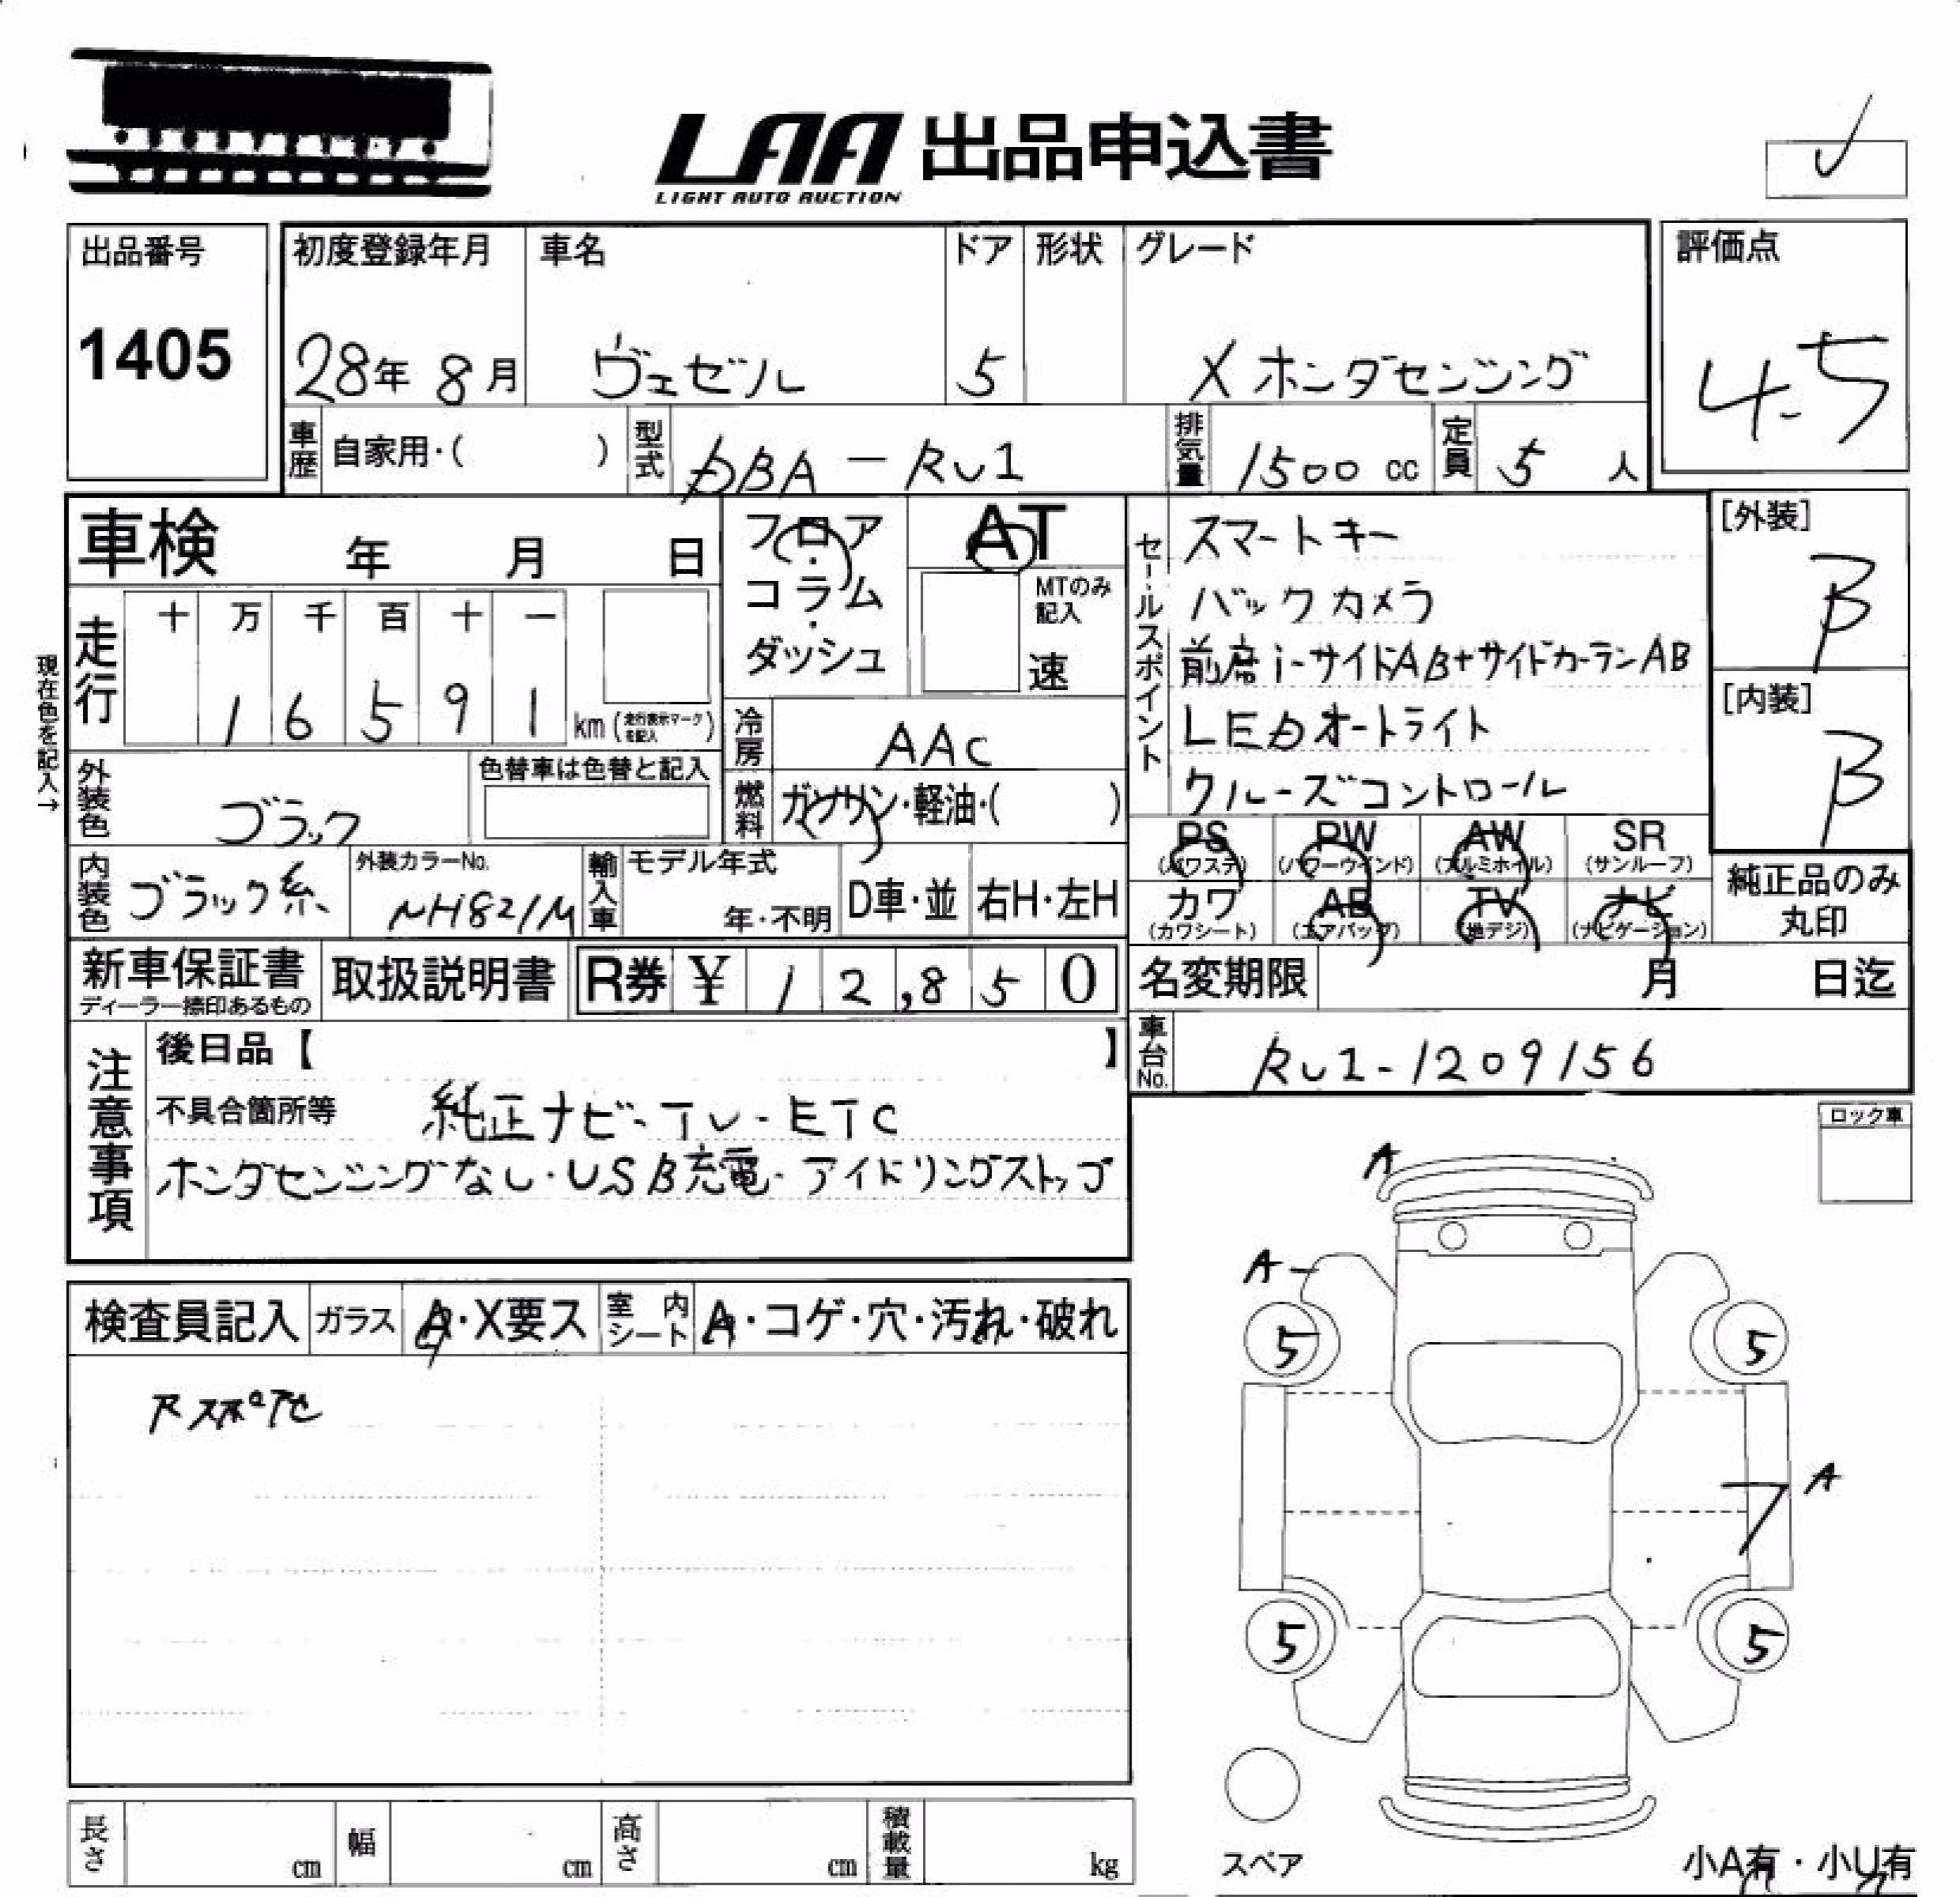 LAA 出品申込書
LIGHT AUTO AUCTION
出品番号
1405
初度登録年月 車名 ドア 形状 グレード
28年 8月 ヴェゼル 5 Xホンダセンシング
評価点
4.5
車歴 自家用・( ) 型式 DBA-RU1 排気量 1500 cc 定員 5 人
車検 年 月 日
フロア・コラム・ダッシュ
AT
MTのみ記入
速
走行 十 万 千 百 十 一
1 6 5 9 1 km (走行表示マークを記入)
現在色を記入→
外装色 ブラック
色替車は色替と記入
冷房 AAC
燃料 ガソリン・軽油・( )
セールスポイント
スマートキー
バックカメラ
前席i-サイドAB+サイドカーテンAB
LEDオートライト
クルーズコントロール
[外装]
B
[内装]
B
内装色 ブラック系
外装カラーNo.
NH821M
輸入車 モデル年式
年・不明 D車・並 右H・左H
PS (パワステ) PW (パワーウインド) AW (アルミホイル) SR (サンルーフ)
カワ (カワシート) AB (エアバッグ) TV (地デジ) ナビ (ナビゲーション)
純正品のみ丸印
新車保証書
ディーラー捺印あるもの
取扱説明書 R券 ¥ 12,850
名変期限 月 日迄
車台No. RU1-1209156
注意事項
後日品【 】
不具合箇所等 純正ナビ・TV・ETC
ホンダセンシングなし・USB充電・アイドリングストップ
ロック車
検査員記入 ガラス A・X要ス 室内シート A・コゲ・穴・汚れ・破れ
A
A
5 5
A
5 5
スペア
小A有・小U有
長さ cm 幅 cm 高さ cm 積載量 kg